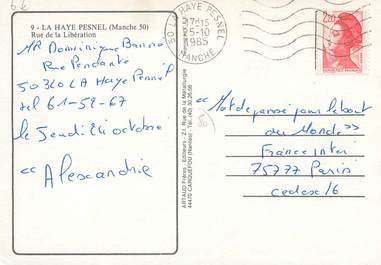 9 - LA HAYE PESNEL (Manche 50)
Rue de la Libération
Mr Dominique
Rue Pendante
50320 LA Haye Pesnil
tel 61-52-67
le Jeudi 24 octobre
« Alexandrie
ARTAUD Frères - Editeurs - Z.I. Rue de la Métallurgie
44470 CARQUEFOU (Nantes) - Tél. (40) 30.26.56
50 LA HAYE PESNEL
17H15
25-10
1985
MANCHE
2,20
« Mot de passe pour le bout
du Monde »
France inter
75777 Paris
cedex 16